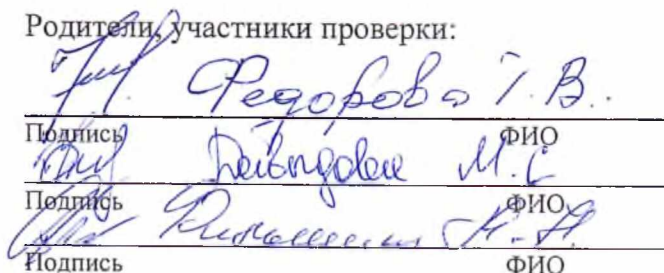 Родители, участники проверки:
Федорова Т. В.
Подпись ФИО
Давыдова М. С
Подпись ФИО
Подпись ФИО